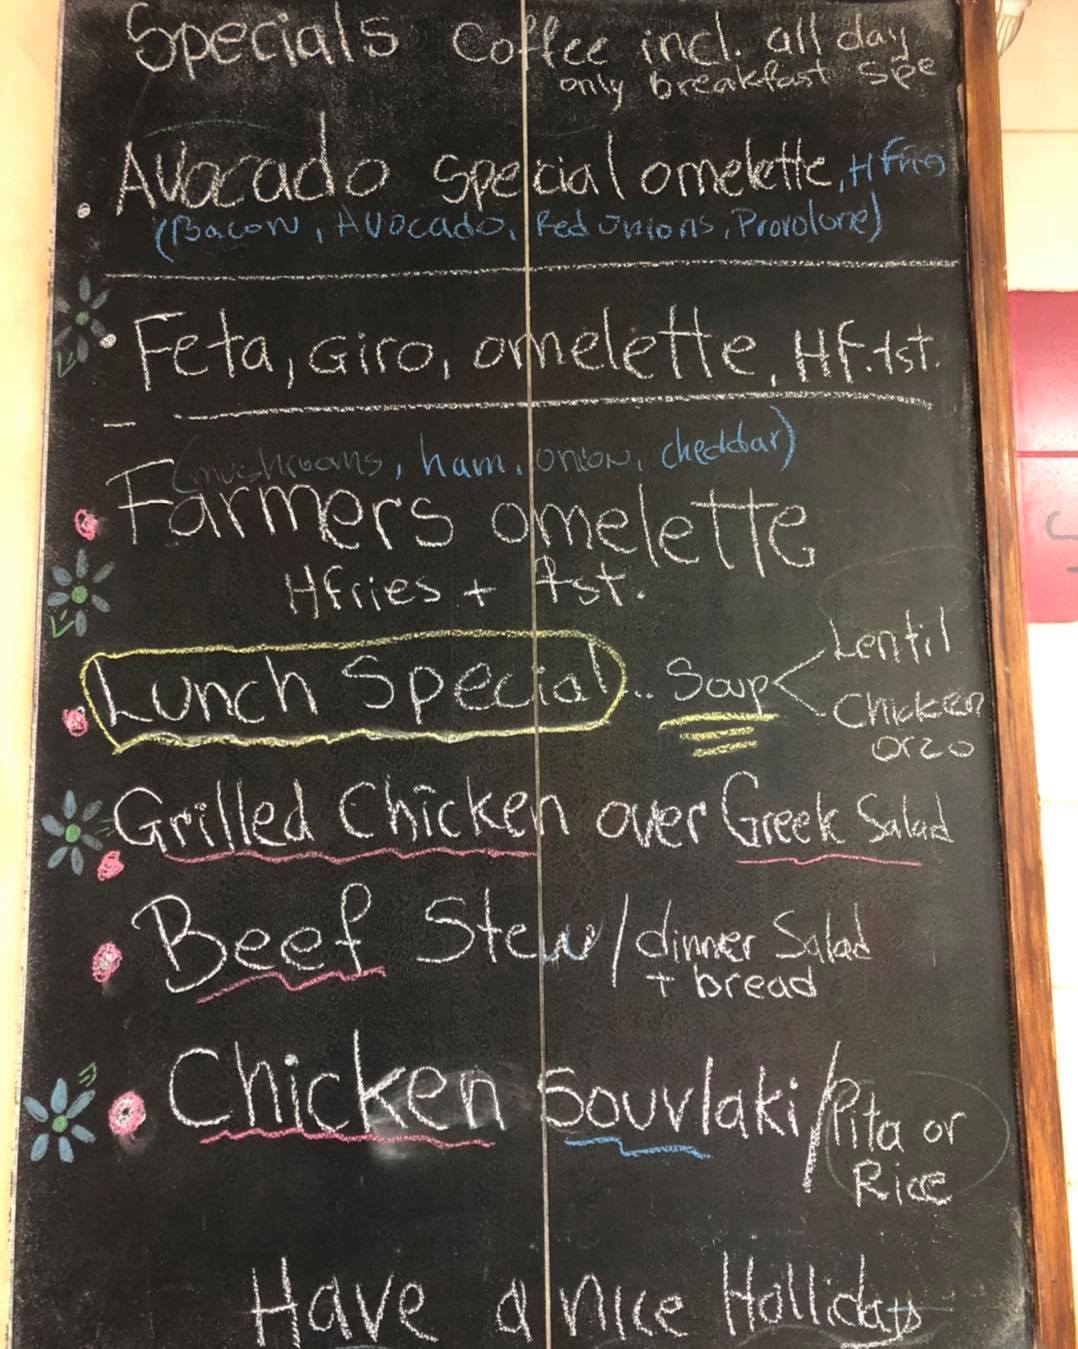 Specials Coffee incl. all day
only breakfast Spe
Avocado special omelette, H Fries
(Bacon, Avocado, Red Onions, Provolone)
Feta, Giro, omelette, HF. tst.
(mushrooms, ham, onion, cheddar)
Farmers omelette
Hfries + tst.
Lunch Special .. Soup < Lentil
Chicken
orzo
Grilled Chicken over Greek Salad
Beef Stew / dinner Salad
+ bread
Chicken Souvlaki / Pita or
Rice
Have a nice Hollidays